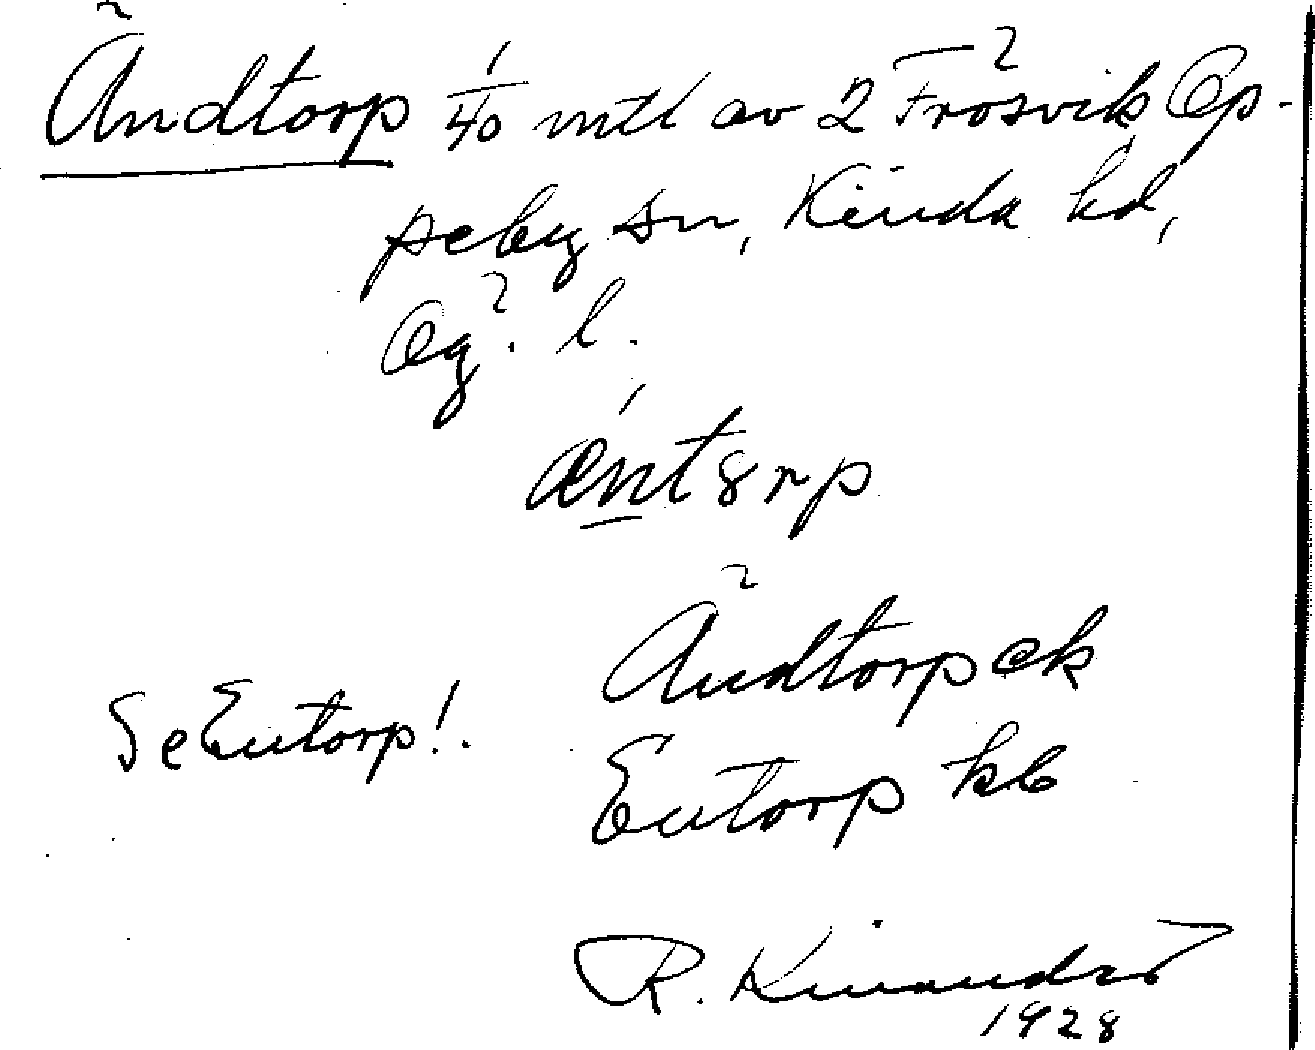 Ändtorp 1/40 mtl av 2 Frösvik Op-
peby sn, Kinda hd,
Ög. l.
ænt8rp
Ändtorp ek
Se Entorp!. Entorp kb
R. Kinander
1928